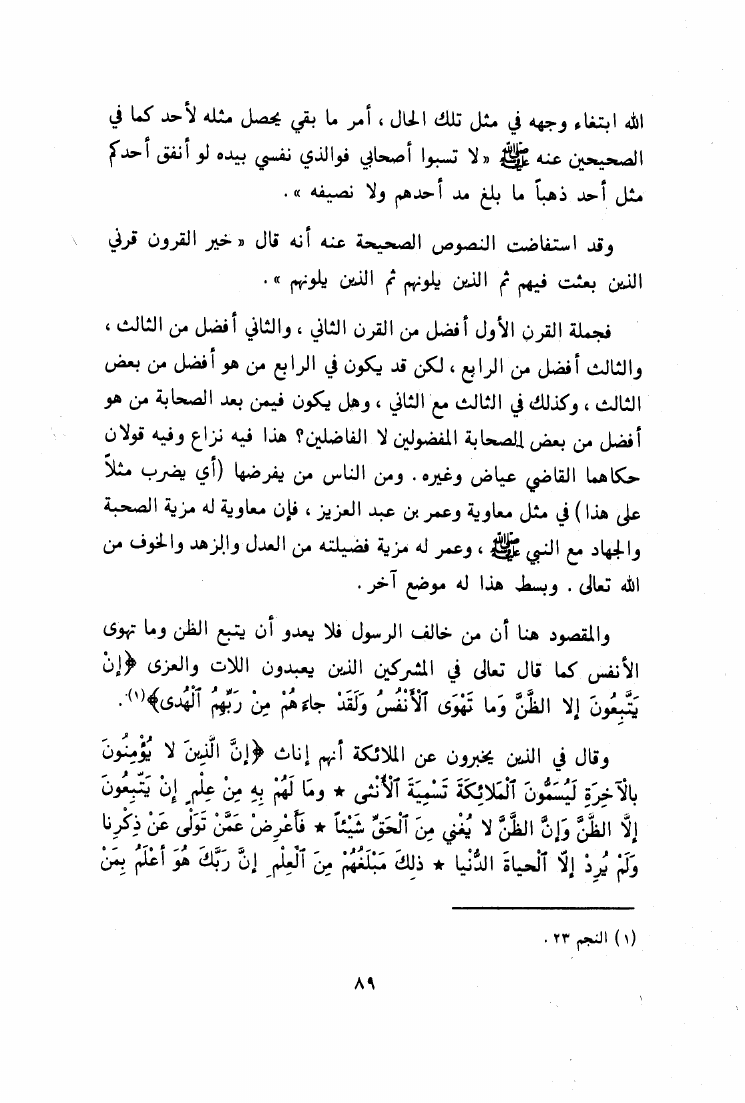 الله ابتغاء وجهه في مثل تلك الحال ، أمر ما بقي يحصل مثله لأحد كما في
الصحيحين عنه ﷺ « لا تسبوا أصحابي فوالذي نفسي بيده لو أنفق أحدكم
مثل أحد ذهباً ما بلغ مد أحدهم ولا نصيفه » .
وقد استفاضت النصوص الصحيحة عنه أنه قال « خير القرون قرني
الذين بعثت فيهم ثم الذين يلونهم ثم الذين يلونهم » .
فجملة القرن الأول أفضل من القرن الثاني ، والثاني أفضل من الثالث ،
والثالث أفضل من الرابع ، لكن قد يكون في الرابع من هو أفضل من بعض
الثالث ، وكذلك في الثالث مع الثاني ، وهل يكون فيمن بعد الصحابة من هو
أفضل من بعض الصحابة المفضولين لا الفاضلين؟ هذا فيه نزاع وفيه قولان
حكاهما القاضي عياض وغيره . ومن الناس من يفرضها (أي يضرب مثلاً
على هذا) في مثل معاوية وعمر بن عبد العزيز ، فإن معاوية له مزية الصحبة
والجهاد مع النبي ﷺ ، وعمر له مزية فضيلته من العدل والزهد والخوف من
الله تعالى . وبسط هذا له موضع آخر .
والمقصود هنا أن من خالف الرسول فلا يعدو أن يتبع الظن وما تهوى
الأنفس كما قال تعالى في المشركين الذين يعبدون اللات والعزى ﴿إِنْ
يَتَّبِعُونَ إلا الظَّنَّ وَما تَهْوَى ٱلْأَنْفُسُ وَلَقَدْ جاءَهُمْ مِنْ رَبِّهِمُ ٱلْهُدى﴾(١) .
وقال في الذين يخبرون عن الملائكة أنهم إناث ﴿إِنَّ الَّذِينَ لا يُؤْمِنُونَ
بِالْآخِرَةِ لَيُسَمُّونَ ٱلْمَلائِكَةَ تَسْمِيَةَ ٱلْأُنْثى ★ وما لَهُمْ بِهِ مِنْ عِلْمٍ إِنْ يَتَّبِعُونَ
إِلَّا الظَّنَّ وَإِنَّ الظَّنَّ لا يُغْني مِنَ ٱلْحَقِّ شَيْئاً ★ فَأَعْرِضْ عَمَّنْ تَوَلَّى عَنْ ذِكْرِنا
وَلَمْ يُرِدْ إِلَّا ٱلْحياةَ الدُّنْيا ★ ذلِكَ مَبْلَغُهُمْ مِنَ ٱلْعِلْمِ إِنَّ رَبَّكَ هُوَ أَعْلَمُ بِمَنْ
(١) النجم ٢٣ .
٨٩